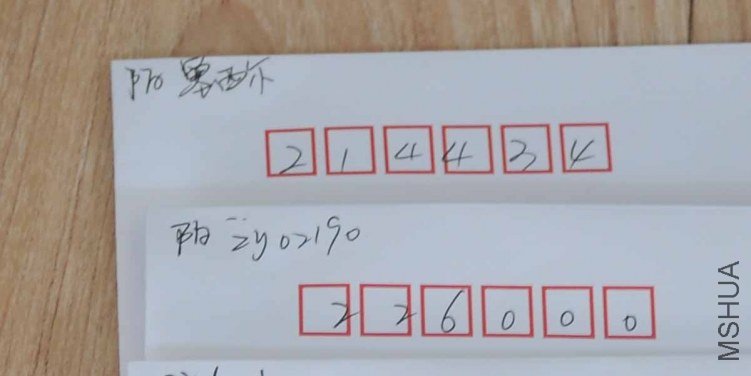 阳 墨西尔
214434
阳 zy02190
226000
MSHUA